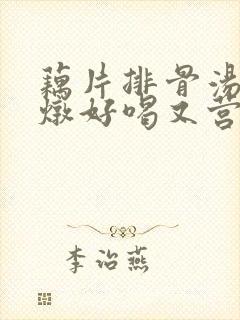 藕片排骨汤
燉好喝又营
李治燕